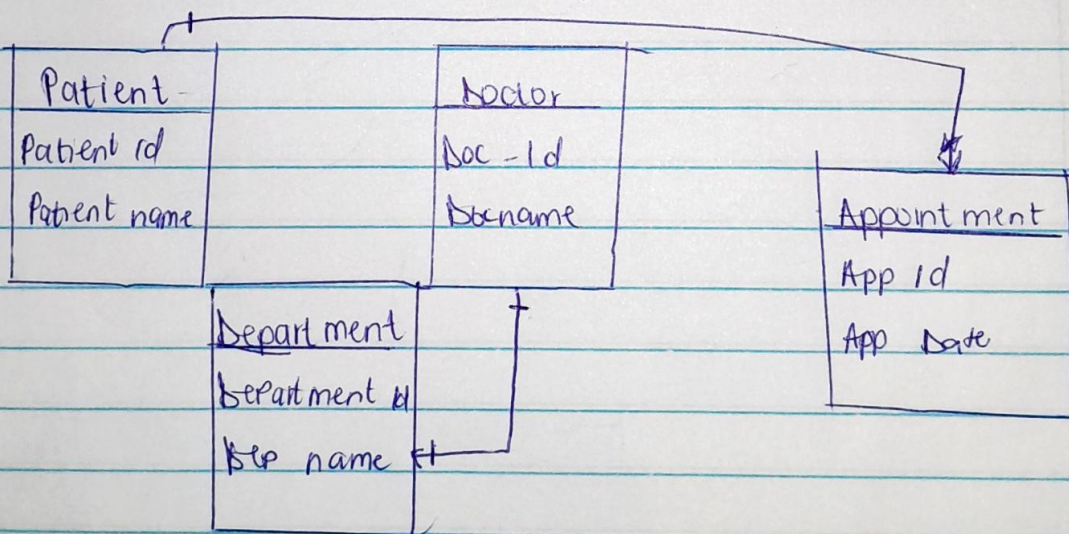 Patient
Patient id
Patient name
Doctor
Doc - Id
Docname
Appointment
App Id
App Date
Department
Department Id
Dep name